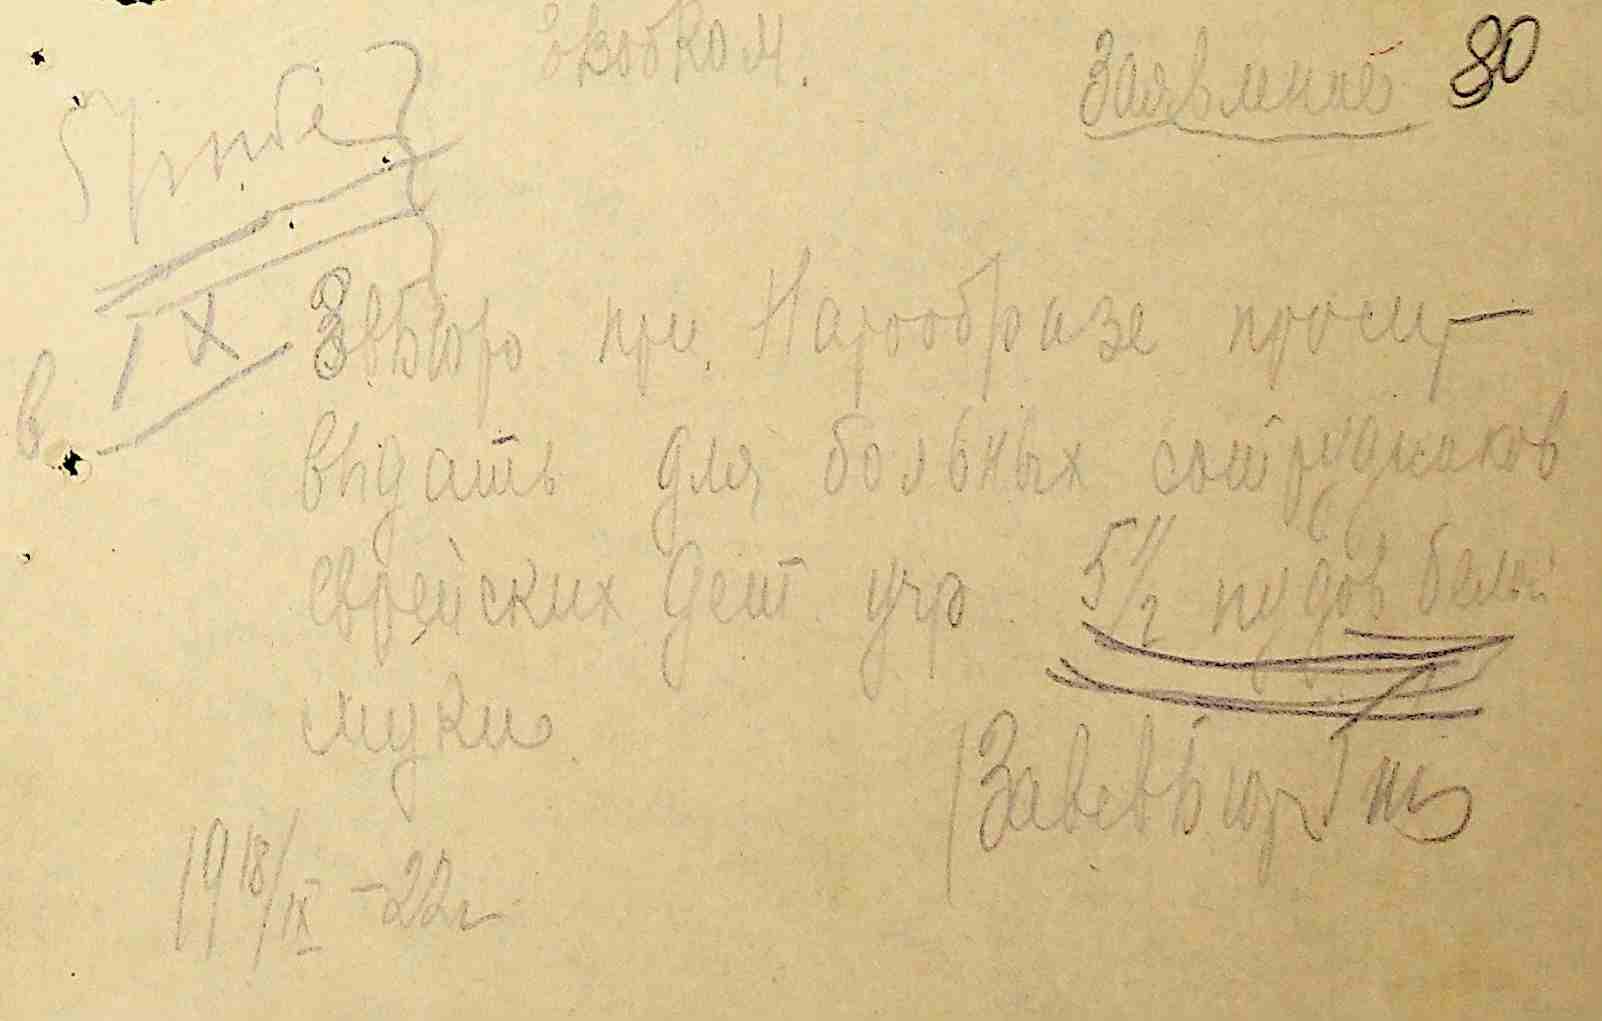 Заявление 80
IX
Евбюро при Наробразе просит
выдать для больных сотрудников
еврейских дет. учр. 5 1/2 пудов белой
муки
Завевбюро
19 18/IX - 22 г